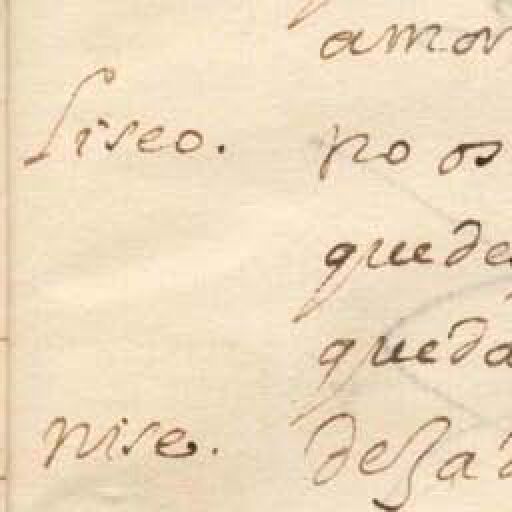 amor
Liseo. no os
quede
queda
nise. deza